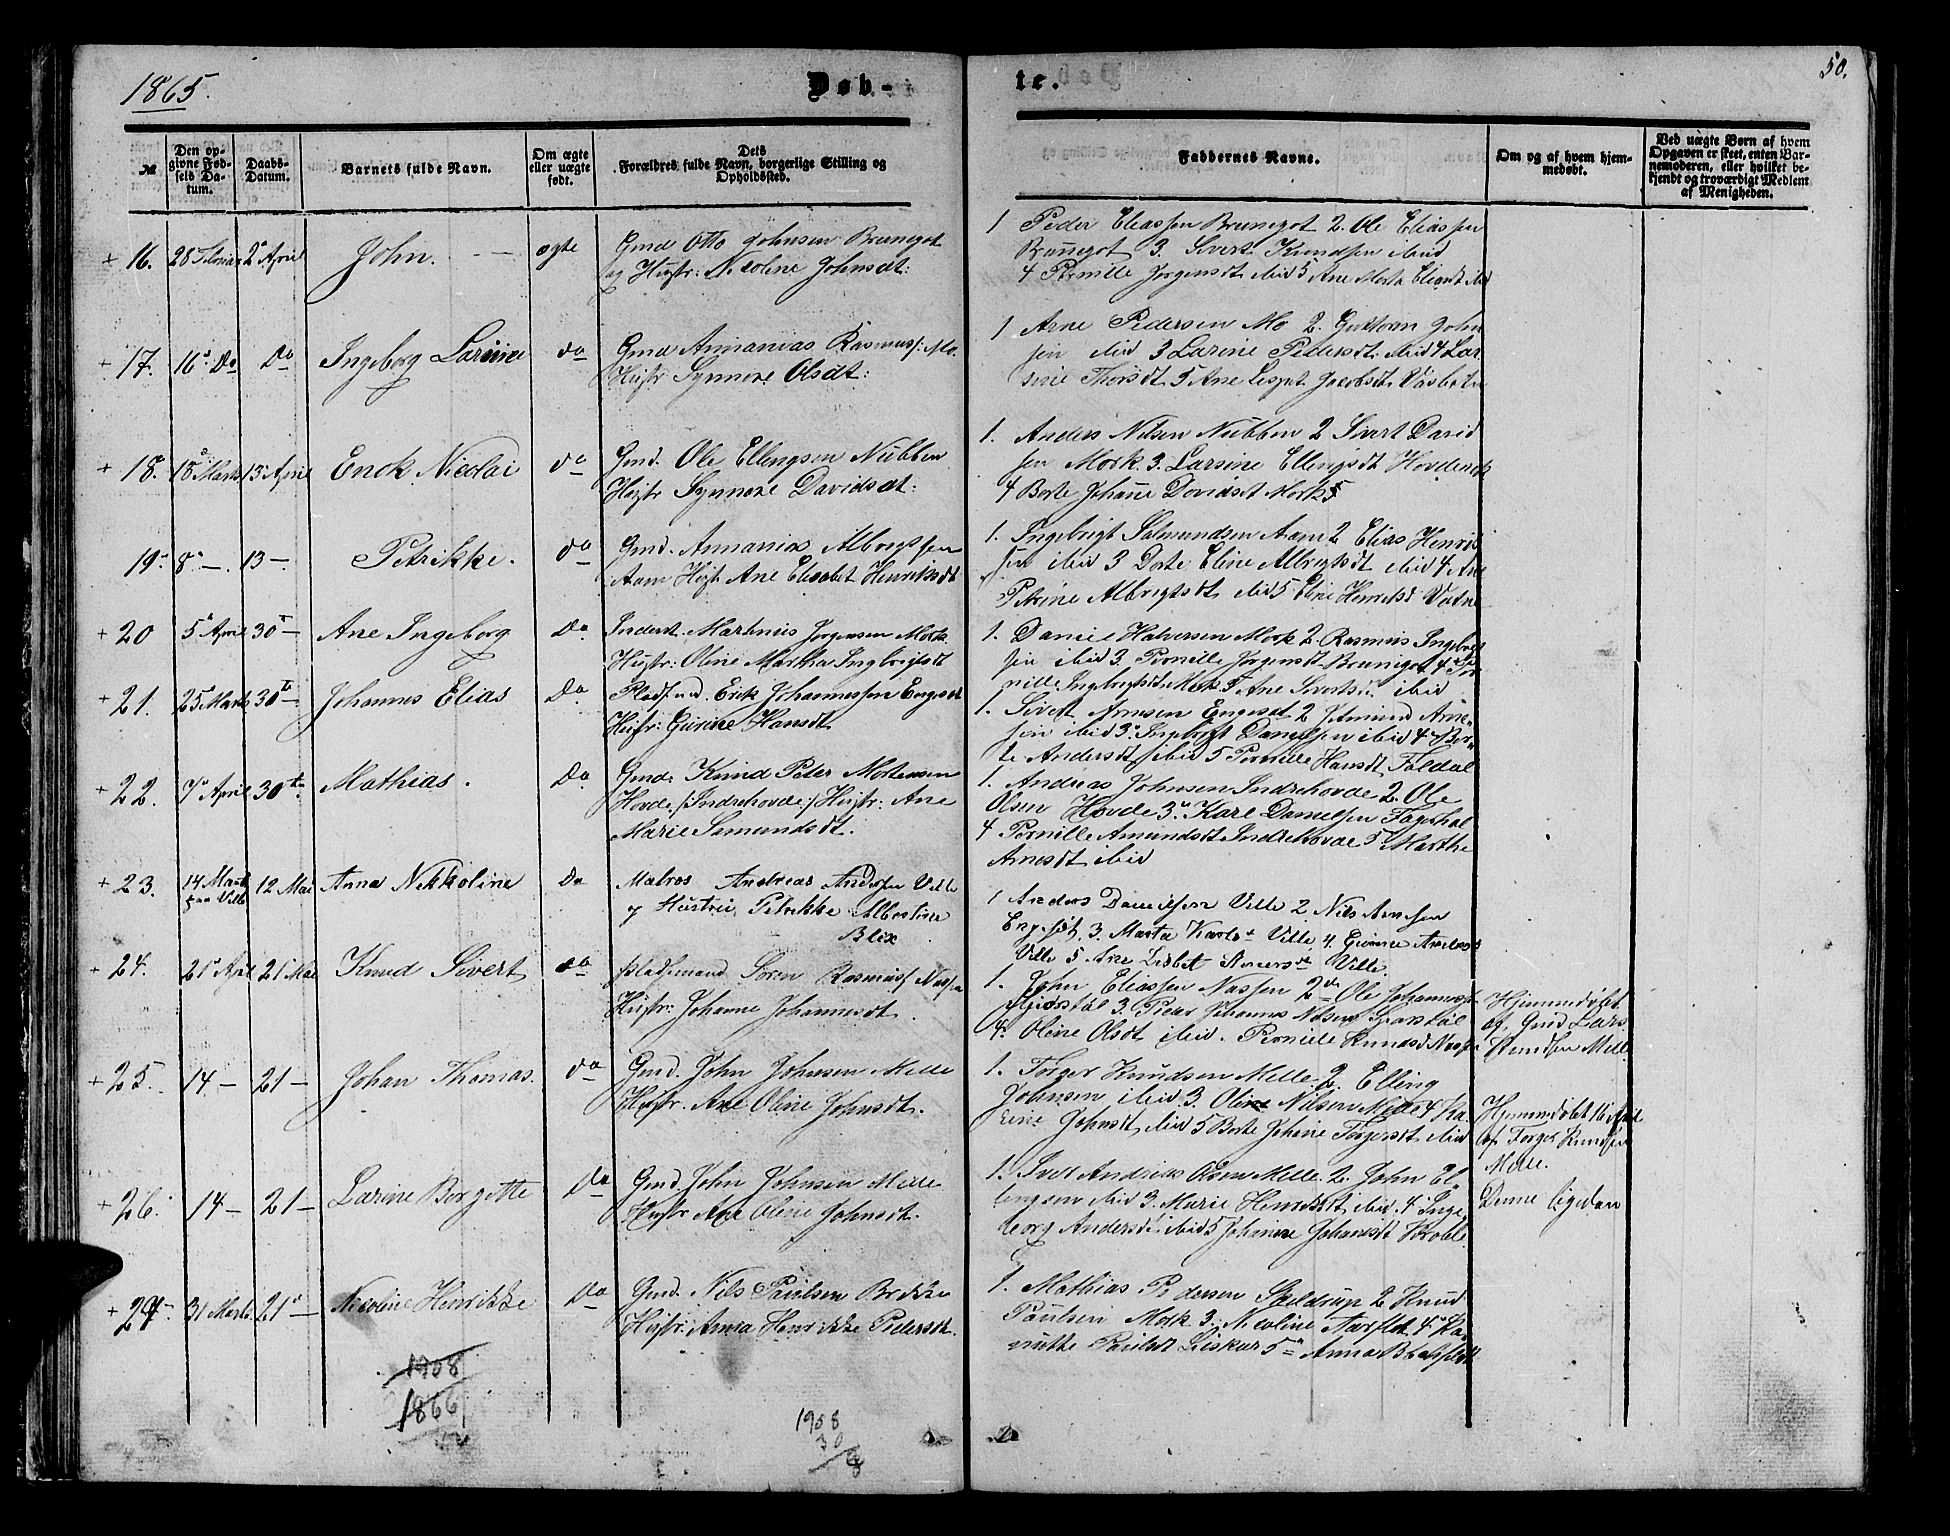 1865.
Døb-
te.
50.
№
Den op-
givne Fød-
sels Da-
tum.
Daabs-
Datum.
Barnets fulde Navn.
Om ægte
eller uægte
født.
Dets
Forældres fulde Navn, borgerlige Stilling og
Opholdssted.
Faddernes Navne.
Om og af hvem hjem-
medøbt.
Ved uægte Børn af hvem
Opgaven er skeet, enten Bar-
nemoderen, eller hvilket be-
kjendt og troværdigt Medlem
af Menigheden.
+ 16. 28 Februar 2 April John. ægte
Gmd Otto Johnsen Brunegot
og Hustr: Nicoline Johnsdt:
1 Peder Eliassen Brunegot 2. Ole Eliassen
Brunegot 3. Sivert Knudsen ibid
4 Pernille Jørgensdt ibid 5 Ane Marta Eliasdt ibid
+ 17. 16 Do Do Ingeborg Larsine do
Gmd Annanias Rasmuss: Mo.
Hustr Synnøve Olsdt:
1 Arne Pedersen Mo 2. Guttorm John
sen ibid 3 Larine Pedersdt. ibid 4 Lar
sine Thorsdt 5 Ane Lisbet Jacobsdt
+ 18. 18 Marts 13 April Erick Nicolai do
Gmd. Ole Ellingsen Nubben
Hustr Synnøve Davidsdt:
1. Anders Nilsen Nubben 2 Sivert David
sen Mork 3. Larsine Ellingsdt
4 Berte Johane Davidsdt Mork 5
19. 8 — 13 — Petrikke. do
Gmd. Annanias Albrigtsen
Aam Hustr Ane Elisabet Henriksdt
1. Ingebrigt Salmundsen Aam 2 Elias Henrik
sen ibid 3 Dorte Eline Albrigtsdt ibid 4 Ane
Petrine Albrigtsdt ibid 5 Eline Henriksd Vatne
+ 20 5 April 30 — Ane Ingeborg Do
Inderst. Martinus Jørgensen Mork
Hustr: Oline Martha Ingbrigtsdt
1. Daniel Halversen Mork 2. Rasmus Ingebrigt
sen ibid 3. Pernille Jørgensdt Brunegot 4 Per
nille Ingebrigtsdt Mork 5 Ane Sivertsd ibid
+ 21. 25 Marts 30 — Johannes Elias Do
Pladsmd. Erik Johannessen Engeset
Hustr: Gurine Hansdt
1. Sivert Arnesen Engeset 2 Jetmund Arne
sen ibid 3. Ingebrigt Danielsen ibid 4 Ber-
te Andersdt ibid 5 Pernille Hansdt Foldal
+ 22. 7 April 30te Mathias. Do
Gmd. Knud Peter Mortensen
Hovde /:Indrehovde:/ Hustr: Ane
Marie Samundsdt.
1. Andreas Johnsen Indrehovde 2. Ole
Olsen Hovde 3. Karl Danielsen
4 Pernille Amundsdt Indrehovde 5 Marthe
Arnesdt ibid
+ 23. 14 Marts paa Ville 12 Mai Anna Nikkoline Do
Matros Andreas Andersen Ville
og Hustru Petrikke Albertine
Blix
1 Anders Danielsen Ville 2 Nils Arnesen
Engeset, 3. Marta Karlsdt Ville 4. Gurine Andersd
Ville 5 Ane Lisbet Andersdt Ville.
+ 24. 21 April 21 Mai Knud Sivert do
Pladsemand Søren Rasmuss Nussen
Hustr: Johanne Johannesdt.
1. John Eliassen Nassen 2 Ole Johannessen
3. Peder Johannes Nilsen
4. Oline Olsdt ibid. Pernille Knudsd
Hjemmedøbt
af Gmd Lars
Knudsen Melle
+ 25. 14 — 21 — Johan Thomas. do
Gmd. John Johnsen Melle
Hustr. Ane Oline Johnsdt.
1. Torger Knudsen Melle. 2. Elling
Johnsen ibid 3. Oline Nilsen Melle 4 Ka
rine Johnsdt ibid 5 Berte Johane Torgersdt ibid
Hjemmedøbt 16 April
af Torger Knudsen
Melle.
+ 26. 14 — 21 — Larine Bergitte Do
Gmd John Johnsen Melle
Hustr Ane Oline Johnsdt.
1. Iver Andreas Olsen Melle. 2. John El
lingsen ibid 3. Marie ibid. 4 Inge
borg Andersdt ibid 5 Johanne Johansdt
Denne ligedan
+ 27 31 Marts. 21 — Nicoline Henrikke Do
Gmd. Nils Paulsen Brekke
Hustr: Anna Henrikke Pedersdt.
1. Mathias Pedersen Sældrup 2 Knud
Paulsen Mork 3. Nicoline Aarflot 4 Ka
nutte Paulsdt 5 Anna B
1908
1866
1908
30
8